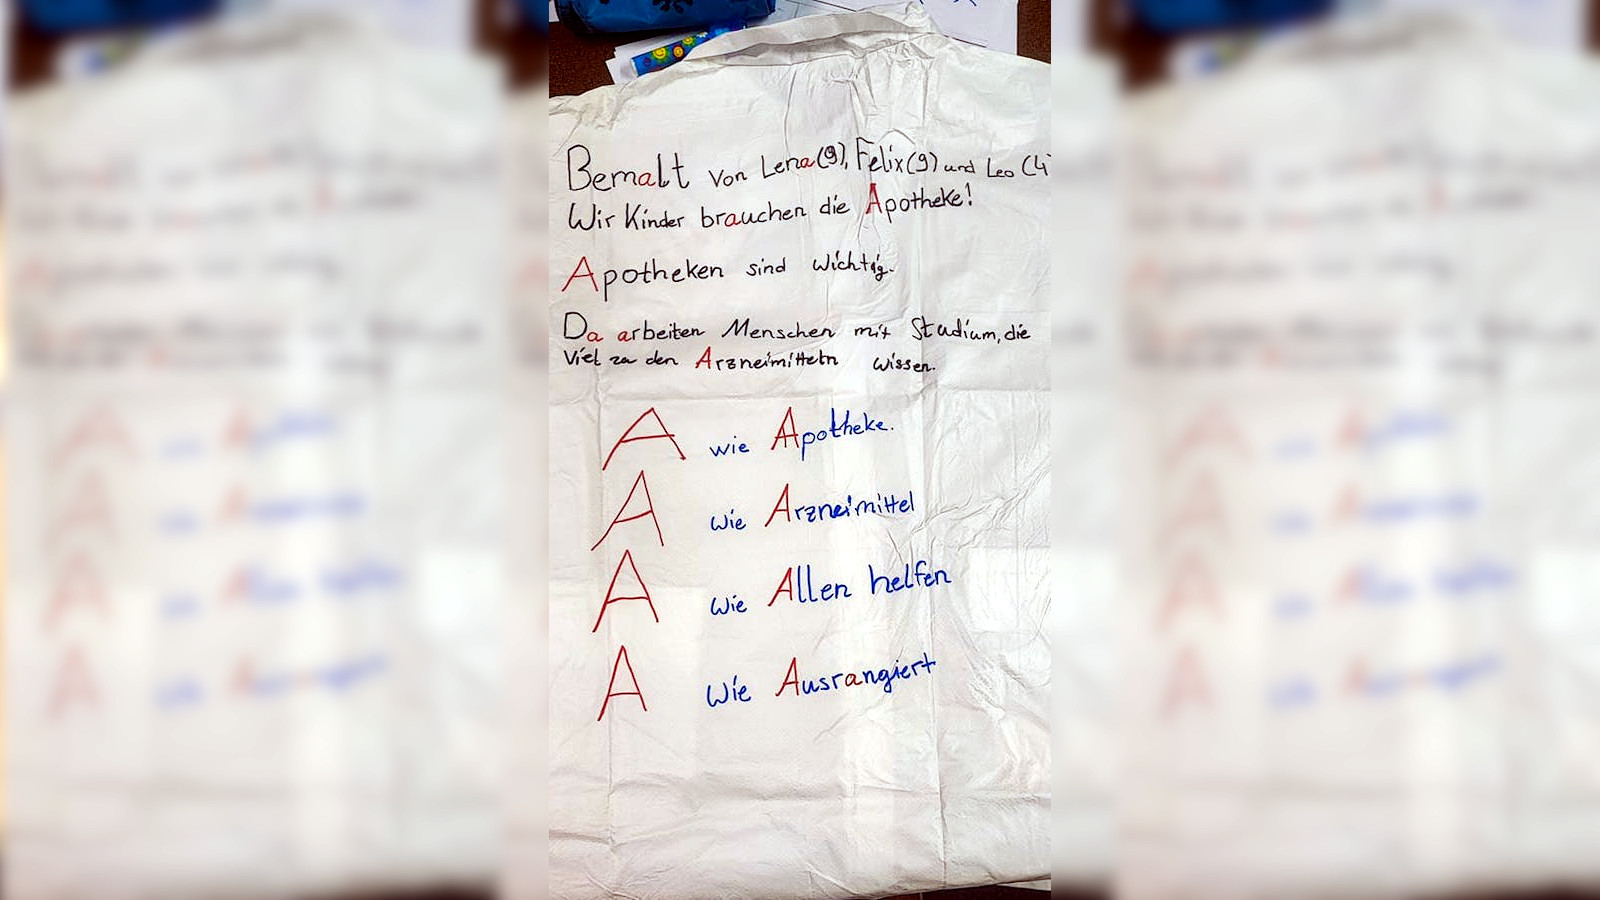 Bemalt von Lena(9), Felix(9) und Leo (4
Wir Kinder brauchen die Apotheke!
Apotheken sind wichtig.
Da arbeiten Menschen mit Studium, die
viel zu den Arzneimitteln wissen.
A wie Apotheke.
A wie Arzneimittel
A wie Allen helfen
A wie Ausrangiert